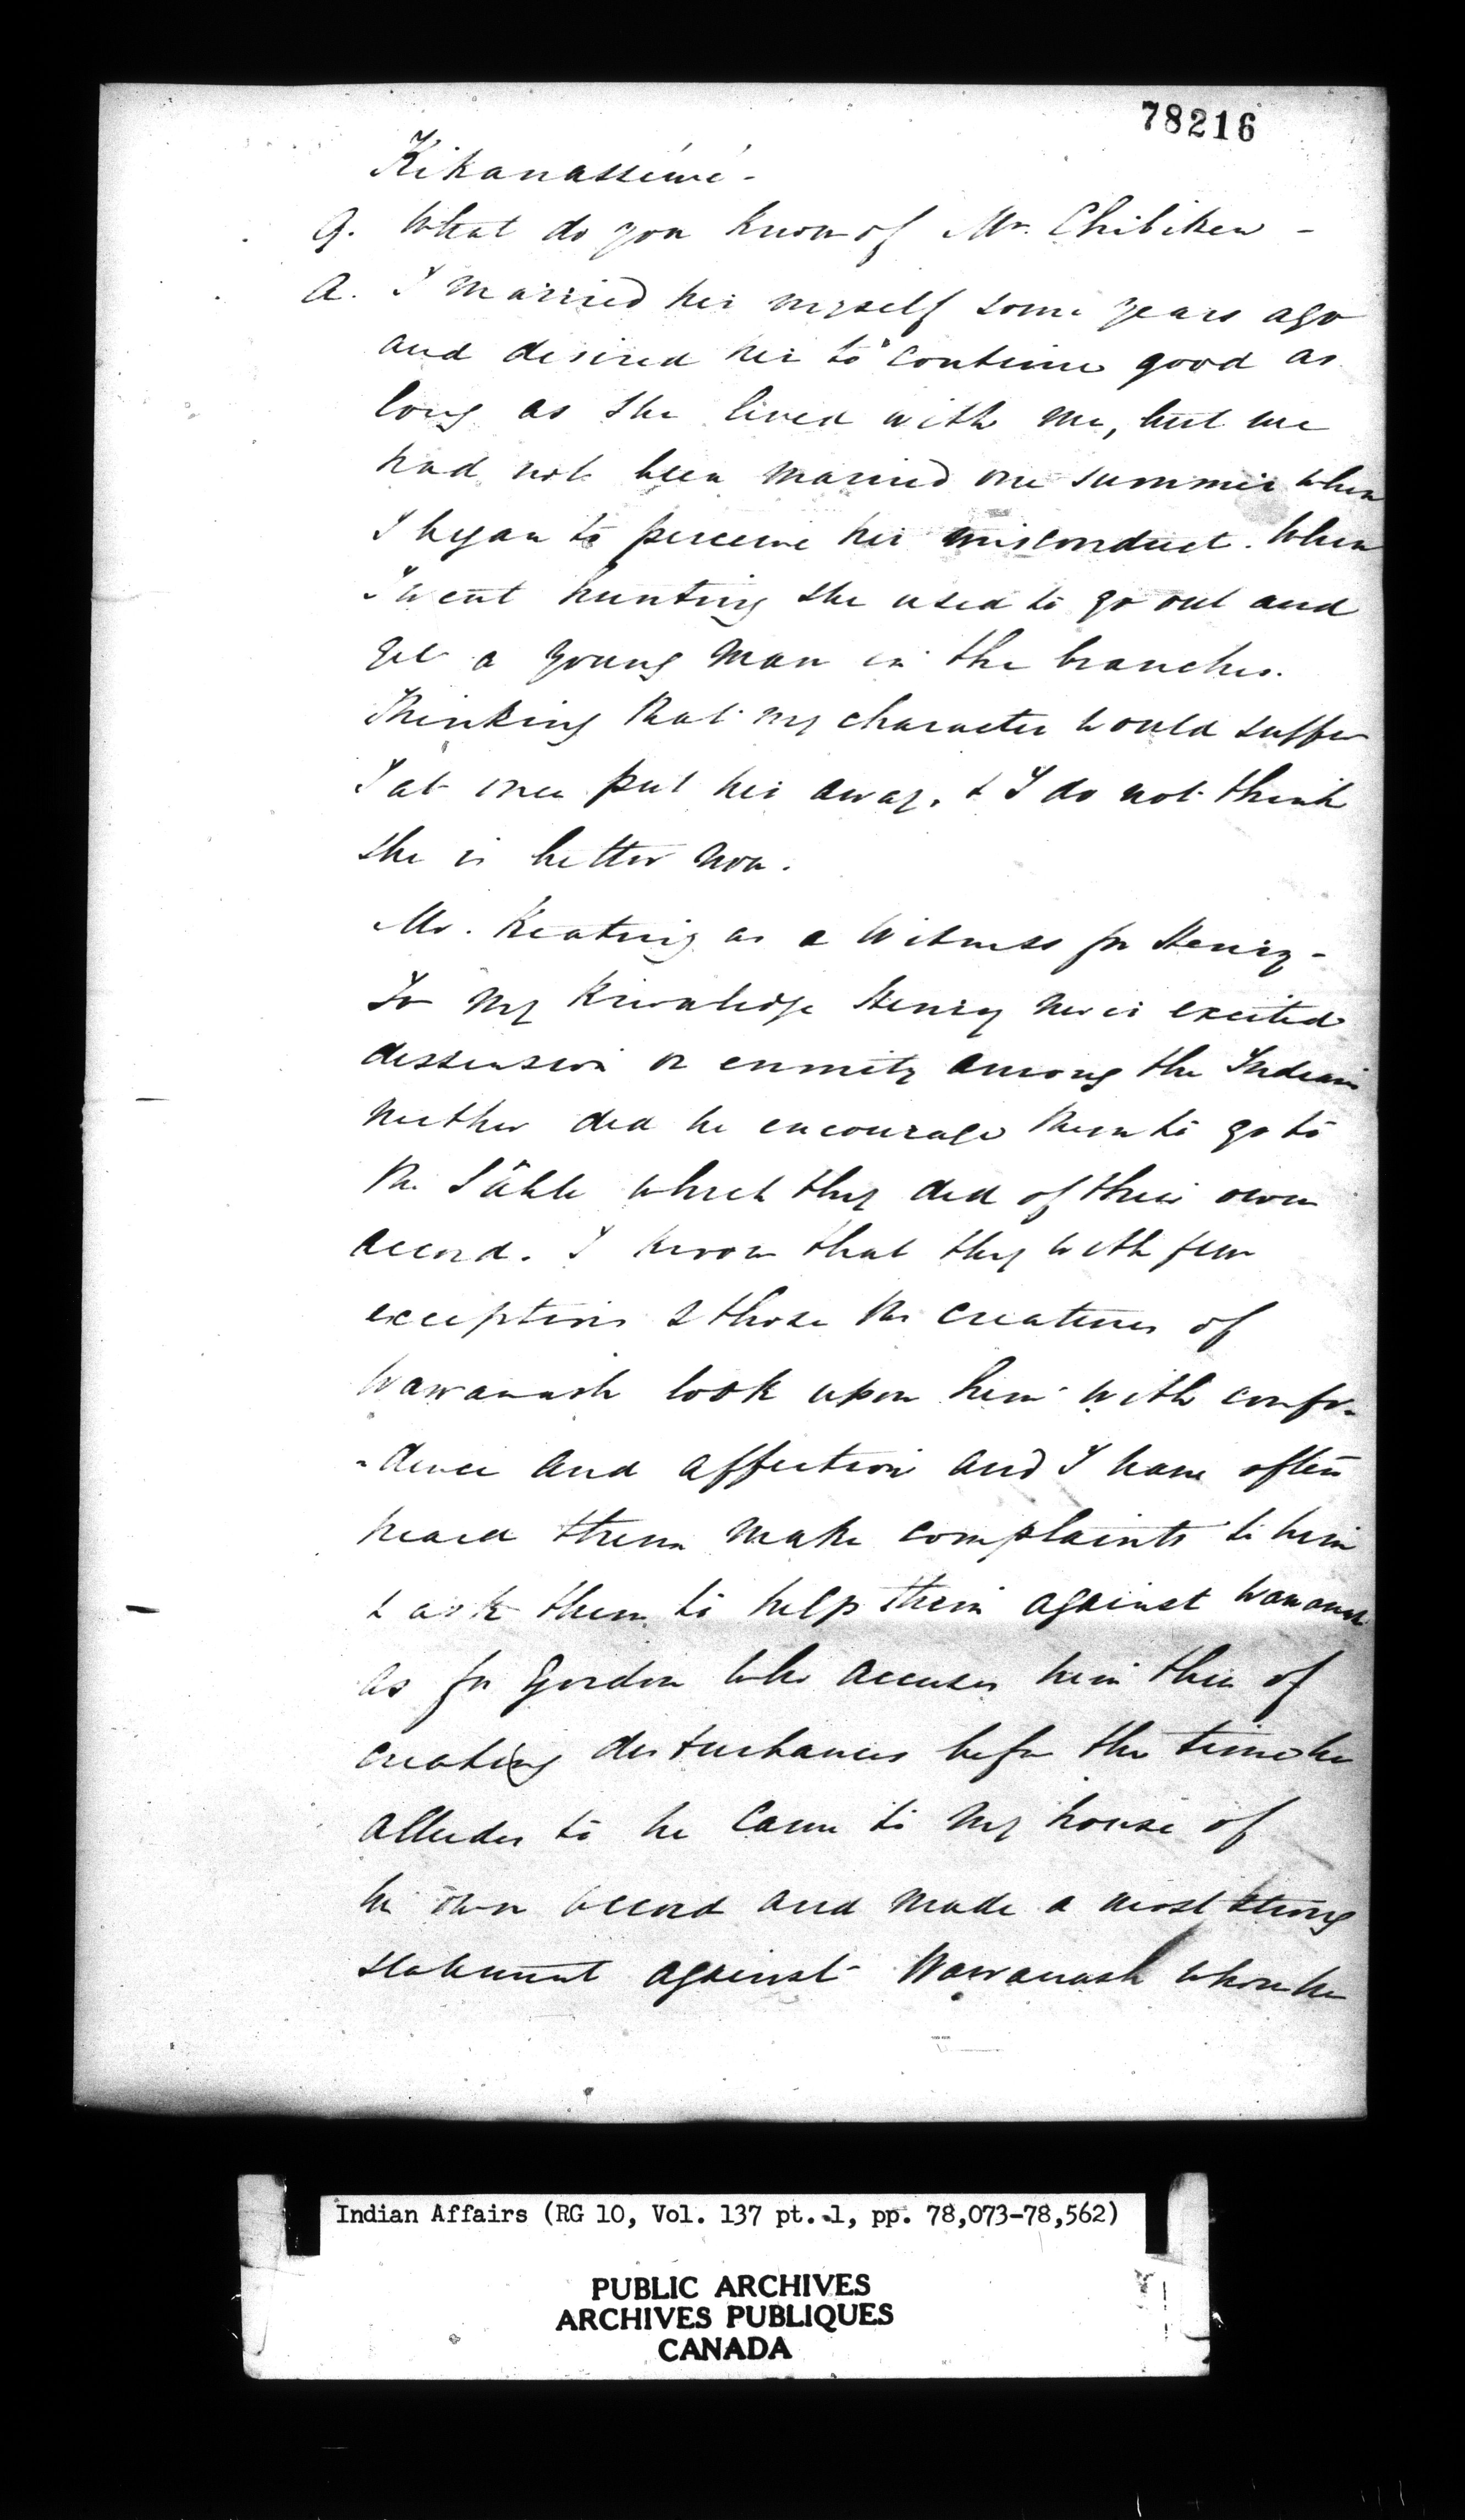 78216
Kikanassiwé -
Q. What do you know of Mrs. Chibikew -
A. I married her myself some years ago
and desired her to continue good as
long as she lived with me, but we
had not been married one summer when
I began to perceive her misconduct. When
I went hunting she used to go out and
get a young man in the branches.
Thinking that my character would suffer
I at once put her away. & I do not think
she is better now.
Mr. Keating as a Witness for Henry -
To my Knowledge Henry never excited
dissension or enmity among the Indians
neither did he encourage them to go to
the Sâble which they did of their own
accord. I know that they with few
exceptions & those the creatures of
Wawanash look upon him with confi-
-dence and affection and I have often
heard them make complaints to him
& ask them to help them against Wawanash
as for Gordon who accuses him then of
creating disturbances before the time he
alludes to he came to my house of
his own accord and made a most strong
statement against Wawanash whom he
Indian Affairs (RG 10, Vol. 137 pt. 1, pp. 78,073-78,562)
PUBLIC ARCHIVES
ARCHIVES PUBLIQUES
CANADA